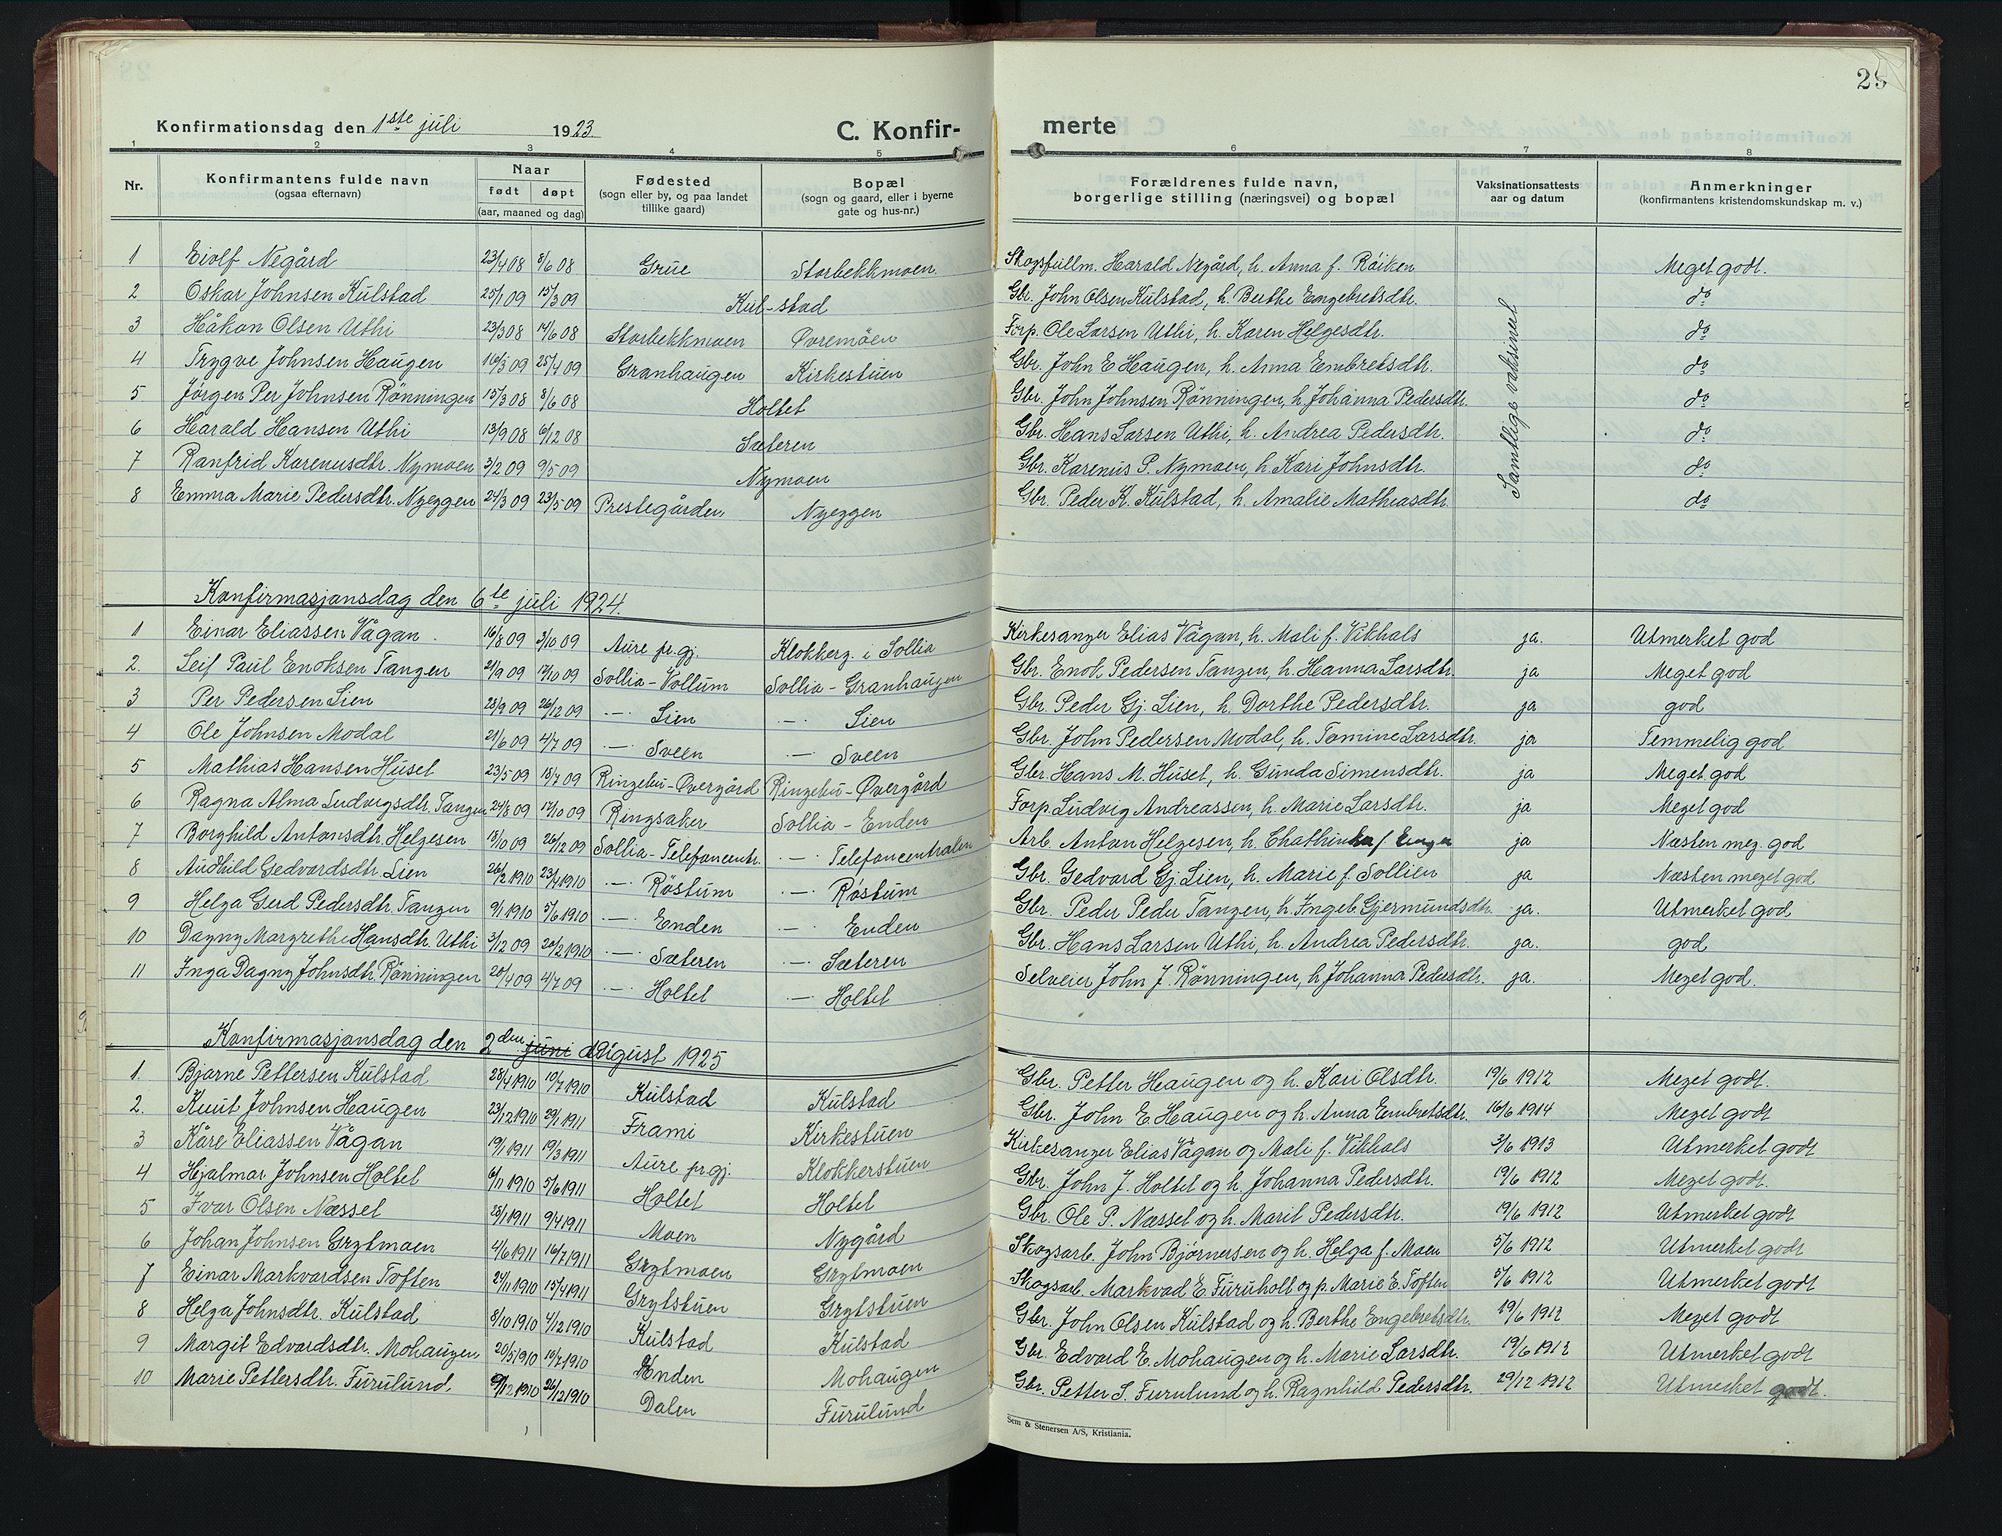 25
Konfirmationsdag den 1ste juli 1923 C. Konfir- merte
1 2 3 4 5 6 7 8
Nr. Konfirmantens fulde navn (ogsaa efternavn) Naar født døpt (aar, maaned og dag) Fødested (sogn eller by, og paa landet tillike gaard) Bopæl (sogn og gaard, eller i byerne gate og hus-nr.) Forældrenes fulde navn, borgerlige stilling (næringsvei) og bopæl Vaksinationsattests aar og datum Anmerkninger (konfirmantens kristendomskundskap m. v.)
1 Eiolf Negård 23/4 08 8/6 08 Grue Storbekkmoen Skogsfullm. Harald Negård, h. Anna f. Røiken Meget godt.
2 Oskar Johnsen Kulstad 25/1 09 15/3 09 Kul-stad Gbr. John Olsen Kulstad, h. Berthe Engebretsdtr. do
3 Håkon Olsen Uthi 23/3 08 14/6 08 Storbekkmoen Øvremoen Forp. Ole Larsen Uthi, h. Karen Helgesdtr. do
4 Trygve Johnsen Haugen 16/3 09 25/4 09 Granhaugen Kirkestuen Gbr. John E Haugen, h. Anna Embretsdtr. do
5 Jörgen Per Johnsen Rönningen 15/3 08 8/6 08 Holtet Gbr. John Johnsen Rönningen, h. Johanna Pedersdtr. do
6 Harald Hansen Uthi 13/9 08 6/12 08 Sæteren Gbr. Hans Larsen Uthi, h. Andrea Pedersdtr. do
7 Ranfrid Karenusdtr. Nymoen 3/2 09 9/5 09 Nymoen Gbr. Karenus P. Nymoen, h. Kari Johnsdtr. do
8 Emma Marie Pedersdtr. Nyeggen 24/3 09 23/5 09 Prestegården Nyeggen Gbr. Peder K. Kulstad, h. Amalie Mathiasdtr. do
Samtlige vaksineret
Konfirmasjonsdag den 6te juli 1924.
1 Einar Eliassen Vågan. 16/8 09 3/10 09 Aure pr.gj. Klokkerg. i Sollia Kirkesanger Elias Vågan, h. Mali f. Vikhals ja. Utmerket god
2. Leif Paul Enoksen Tangen 21/9 09 17/10 09 Sollia-Vollum Sollia-Granhaugen Gbr. Enok Pedersen Tangen, h. Hanna Larsdtr. ja Meget god
3 Per Pedersen Lien 28/9 09 26/12 09 —·— Lien —·— Lien Gbr. Peder Gj. Lien, h. Dorthe Pedersdtr. ja god
4 Ole Johnsen Modal 21/6 09 4/7 09 —·— Sveen —·— Sveen Gbr. John Pedersen Modal, h. Tomine Larsdtr. ja Temmelig god
5 Mathias Hansen Huset 23/5 09 18/7 09 Ringebu-Øvergård Ringebu-Øvergård Gbr. Hans M. Huset, h. Gunda Simensdtr. ja Meget god
6 Ragna Alma Ludvigsdtr. Tangen 24/8 09 17/10 09 Ringsaker Sollia-Enden Forp. Ludvig Andreassen, h. Marie Larsdtr. ja Meget god
7 Borghild Antonsdtr. Helgesen 13/10 09 26/12 09 Sollia-Telefoncentr. —·— Telefoncentralen Arb. Anton Helgesen, h. ja Næsten meg. god
8 Audhild Gedvardsdtr. Lien 26/2 1910 23/4 1910 —·— Röstum —·— Röstum Gbr. Gedvard Gj. Lien, h. Marie f. Sollien ja Næsten meget god
9 Helga Gerd Pedersdtr. Tangen 9/1 1910 5/6 1910 —·— Enden —·— Enden Gbr. Peder Peder Tangen, h. Ingeb. Gjermundsdtr. ja. Utmerket god
10 Dagny Margrethe Hansdtr. Uthi 3/12 09 20/2 1910 —·— Sæteren —·— Sæteren Gbr. Hans Larsen Uthi, h. Andrea Pedersdtr. ja. god
11 Inga Dagny Johnsdtr. Rönningen 20/4 09 4/7 09 —·— Holtet —·— Holtet Selveier John J. Rönningen, h. Johanna Pedersdtr. ja. Meget god.
Konfirmasjonsdag den 2den juni august 1925
1. Bjarne Pettersen Kulstad 28/4 1910 10/7 1910 Kulstad Kulstad Gbr. Petter Haugen og h. Kari Olsdtr. 19/6 1912 Meget godt.
2. Knut Johnsen Haugen 23/12 1910 29/1 1911 Frami Kirkestuen Gbr. John E. Haugen og h. Anna Embretsdtr. 16/6 1914 Meget godt
3 Kåre Eliassen Vågan 19/1 1911 19/3 1911 Aure pr.gj. Klokkerstuen Kirkesanger Elias Vågan og Mali f. Vikhals 3/6 1913 Utmerket godt
4 Hjalmar Johnsen Holtet 6/11 1910 5/6 1911 Holtet Holtet Gbr. John J. Holtet og h. Johanna Pedersdtr. 19/6 1912 Meget godt.
5 Ivar Olsen Næsset 28/1 1911 9/4 1911 Moen Nygård Gbr. Ole P. Næsset og h. Marit Pedersdtr. 19/6 1912 Utmerket godt
6 Johan Johnsen Grytmoen 4/6 1911 16/7 1911 Grytmoen Grytmoen Skogsarb. John Bjørnersen og h. Helga f. Moen 5/6 1912 Utmerket godt
7 Einar Markvardsen Toften 24/11 1910 15/4 1911 Grytstuen Grytstuen Skogsarb. Markvad E. Furuholt og p. Marie E. Toften 5/6 1912 Utmerket godt
8 Helga Johnsdtr. Kulstad 8/10 1910 4/12 1910 Kulstad Kulstad Gbr. John Olsen Kulstad og h. Berthe Engebretsdtr. 19/6 1912 Meget godt
9 Margit Edvardsdtr. Mohaugen 20/5 1910 10/7 1910 Enden Mohaugen Gbr. Edvard E. Mohaugen og h. Marie Larsdtr. 19/6 1912 Utmerket godt
10 Marie Pettersdtr. Furulund. 9/12 1910 26/12 1910 Dalen Furulund Gbr. Petter S. Furulund og h. Ragnhild Pedersdtr. 29/12 1912 Utmerket godt.
Sem & Stenersen A/S, Kristiania.